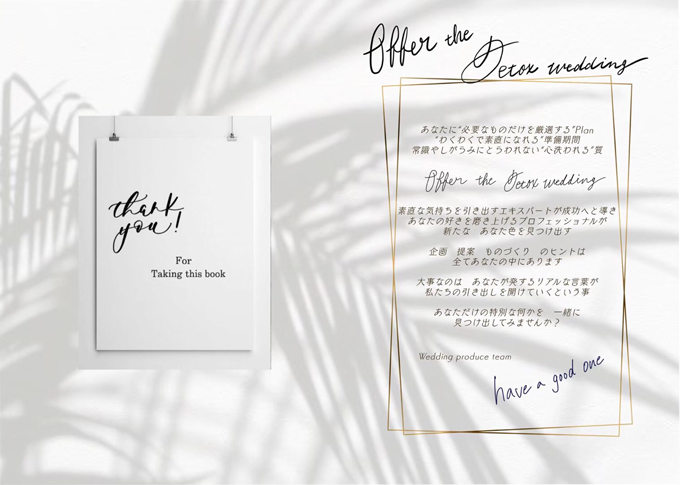 thank
you!
For
Taking this book
Offer the
Detox wedding
あなたに“必要なものだけを厳選する”Plan
“わくわくで素直になれる”準備期間
常識やしがらみにとらわれない“心洗われる”質
Offer the Detox wedding
素直な気持ちを引き出すエキスパートが成功へと導き
あなたの好きを磨き上げるプロフェッショナルが
新たな　あなた色を見つけ出す
企画　提案　ものづくり　のヒントは
全てあなたの中にあります
大事なのは　あなたが発するリアルな言葉が
私たちの引き出しを開けていくという事
あなただけの特別な何かを　一緒に
見つけ出してみませんか？
Wedding produce team
have a good one